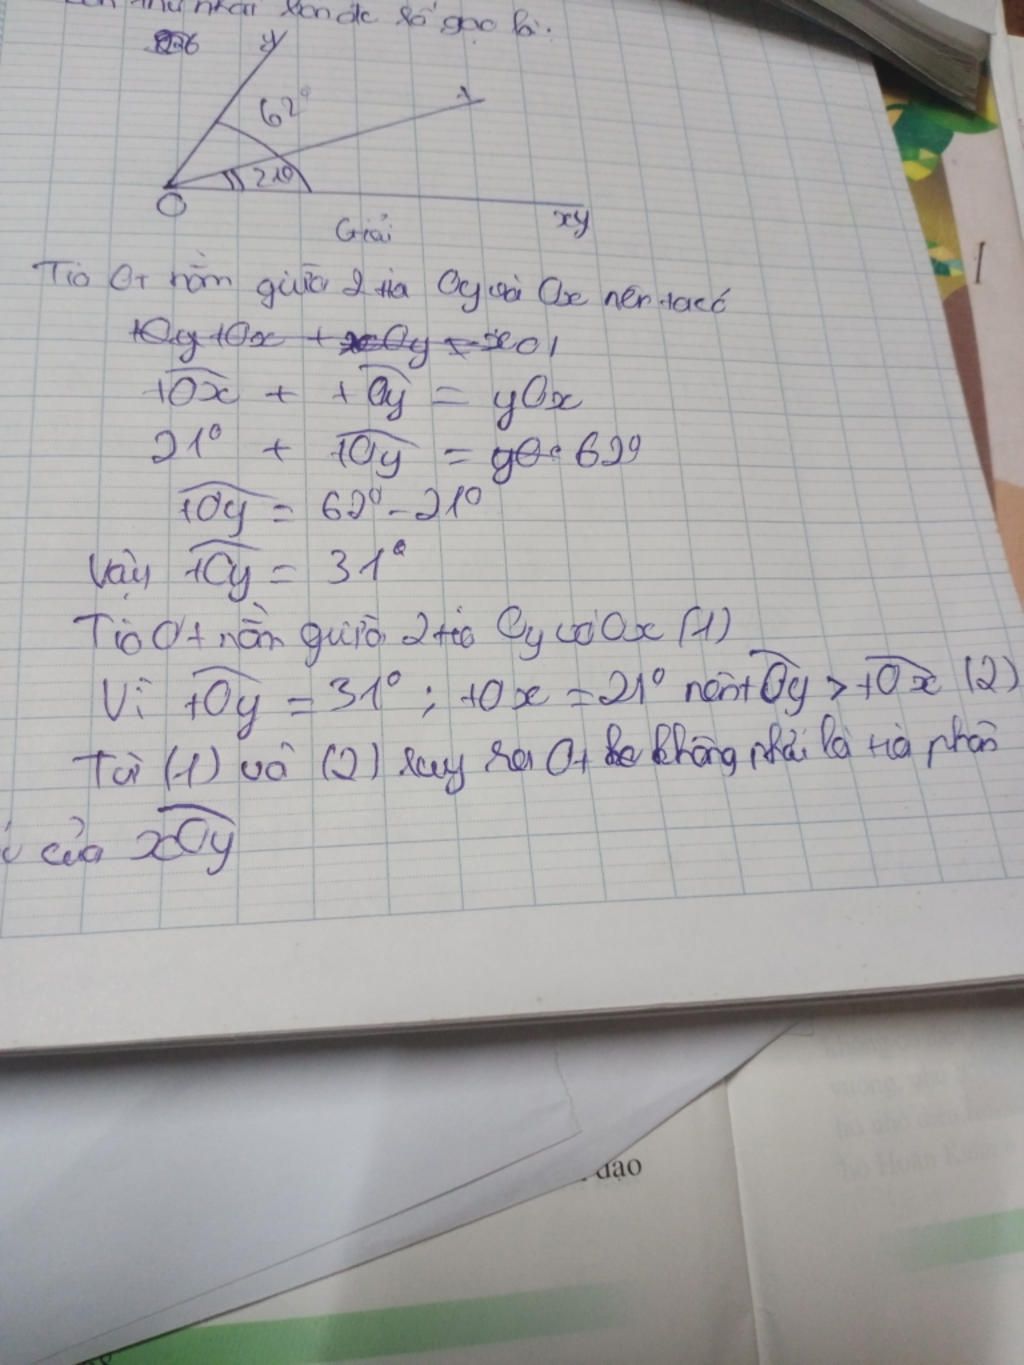 thứ nhất số gạo là:
y
62°
t
21°
O
xy
Giải
Tia Ot nằm giữa 2 tia Oy và Ox nên ta có
tOx + tOy = yOx
21° + tOy = 62°
tOy = 62° - 21°
Vậy tOy = 31°
Tia Ot nằm giữa 2 tia Oy và Ox (1)
Vì tOy = 31° ; tOx = 21° nên tOy > tOx (2)
Từ (1) và (2) suy ra Ot không phải là tia phân
của xOy
đạo